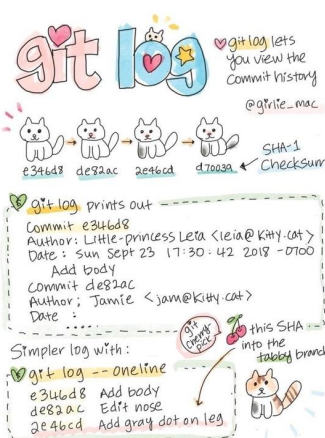 git log
git log lets
you view the
commit history
@girlie_mac
e346d8 de82ac 2e46cd d7003a
SHA-1
Checksum
git log prints out
Commit e346d8
Author: Little-princess Leia <leia@kitty.cat>
Date: Sun Sept 23 17:30:42 2018 -0700
Add body
Commit de82ac
Author; Jamie <jam@kitty.cat>
Date :
Simpler log with:
git log --oneline
e346d8 Add body
de82ac Edit nose
2e46cd Add gray dot on leg
git
cherry
pick
this SHA
into the
tabby branc